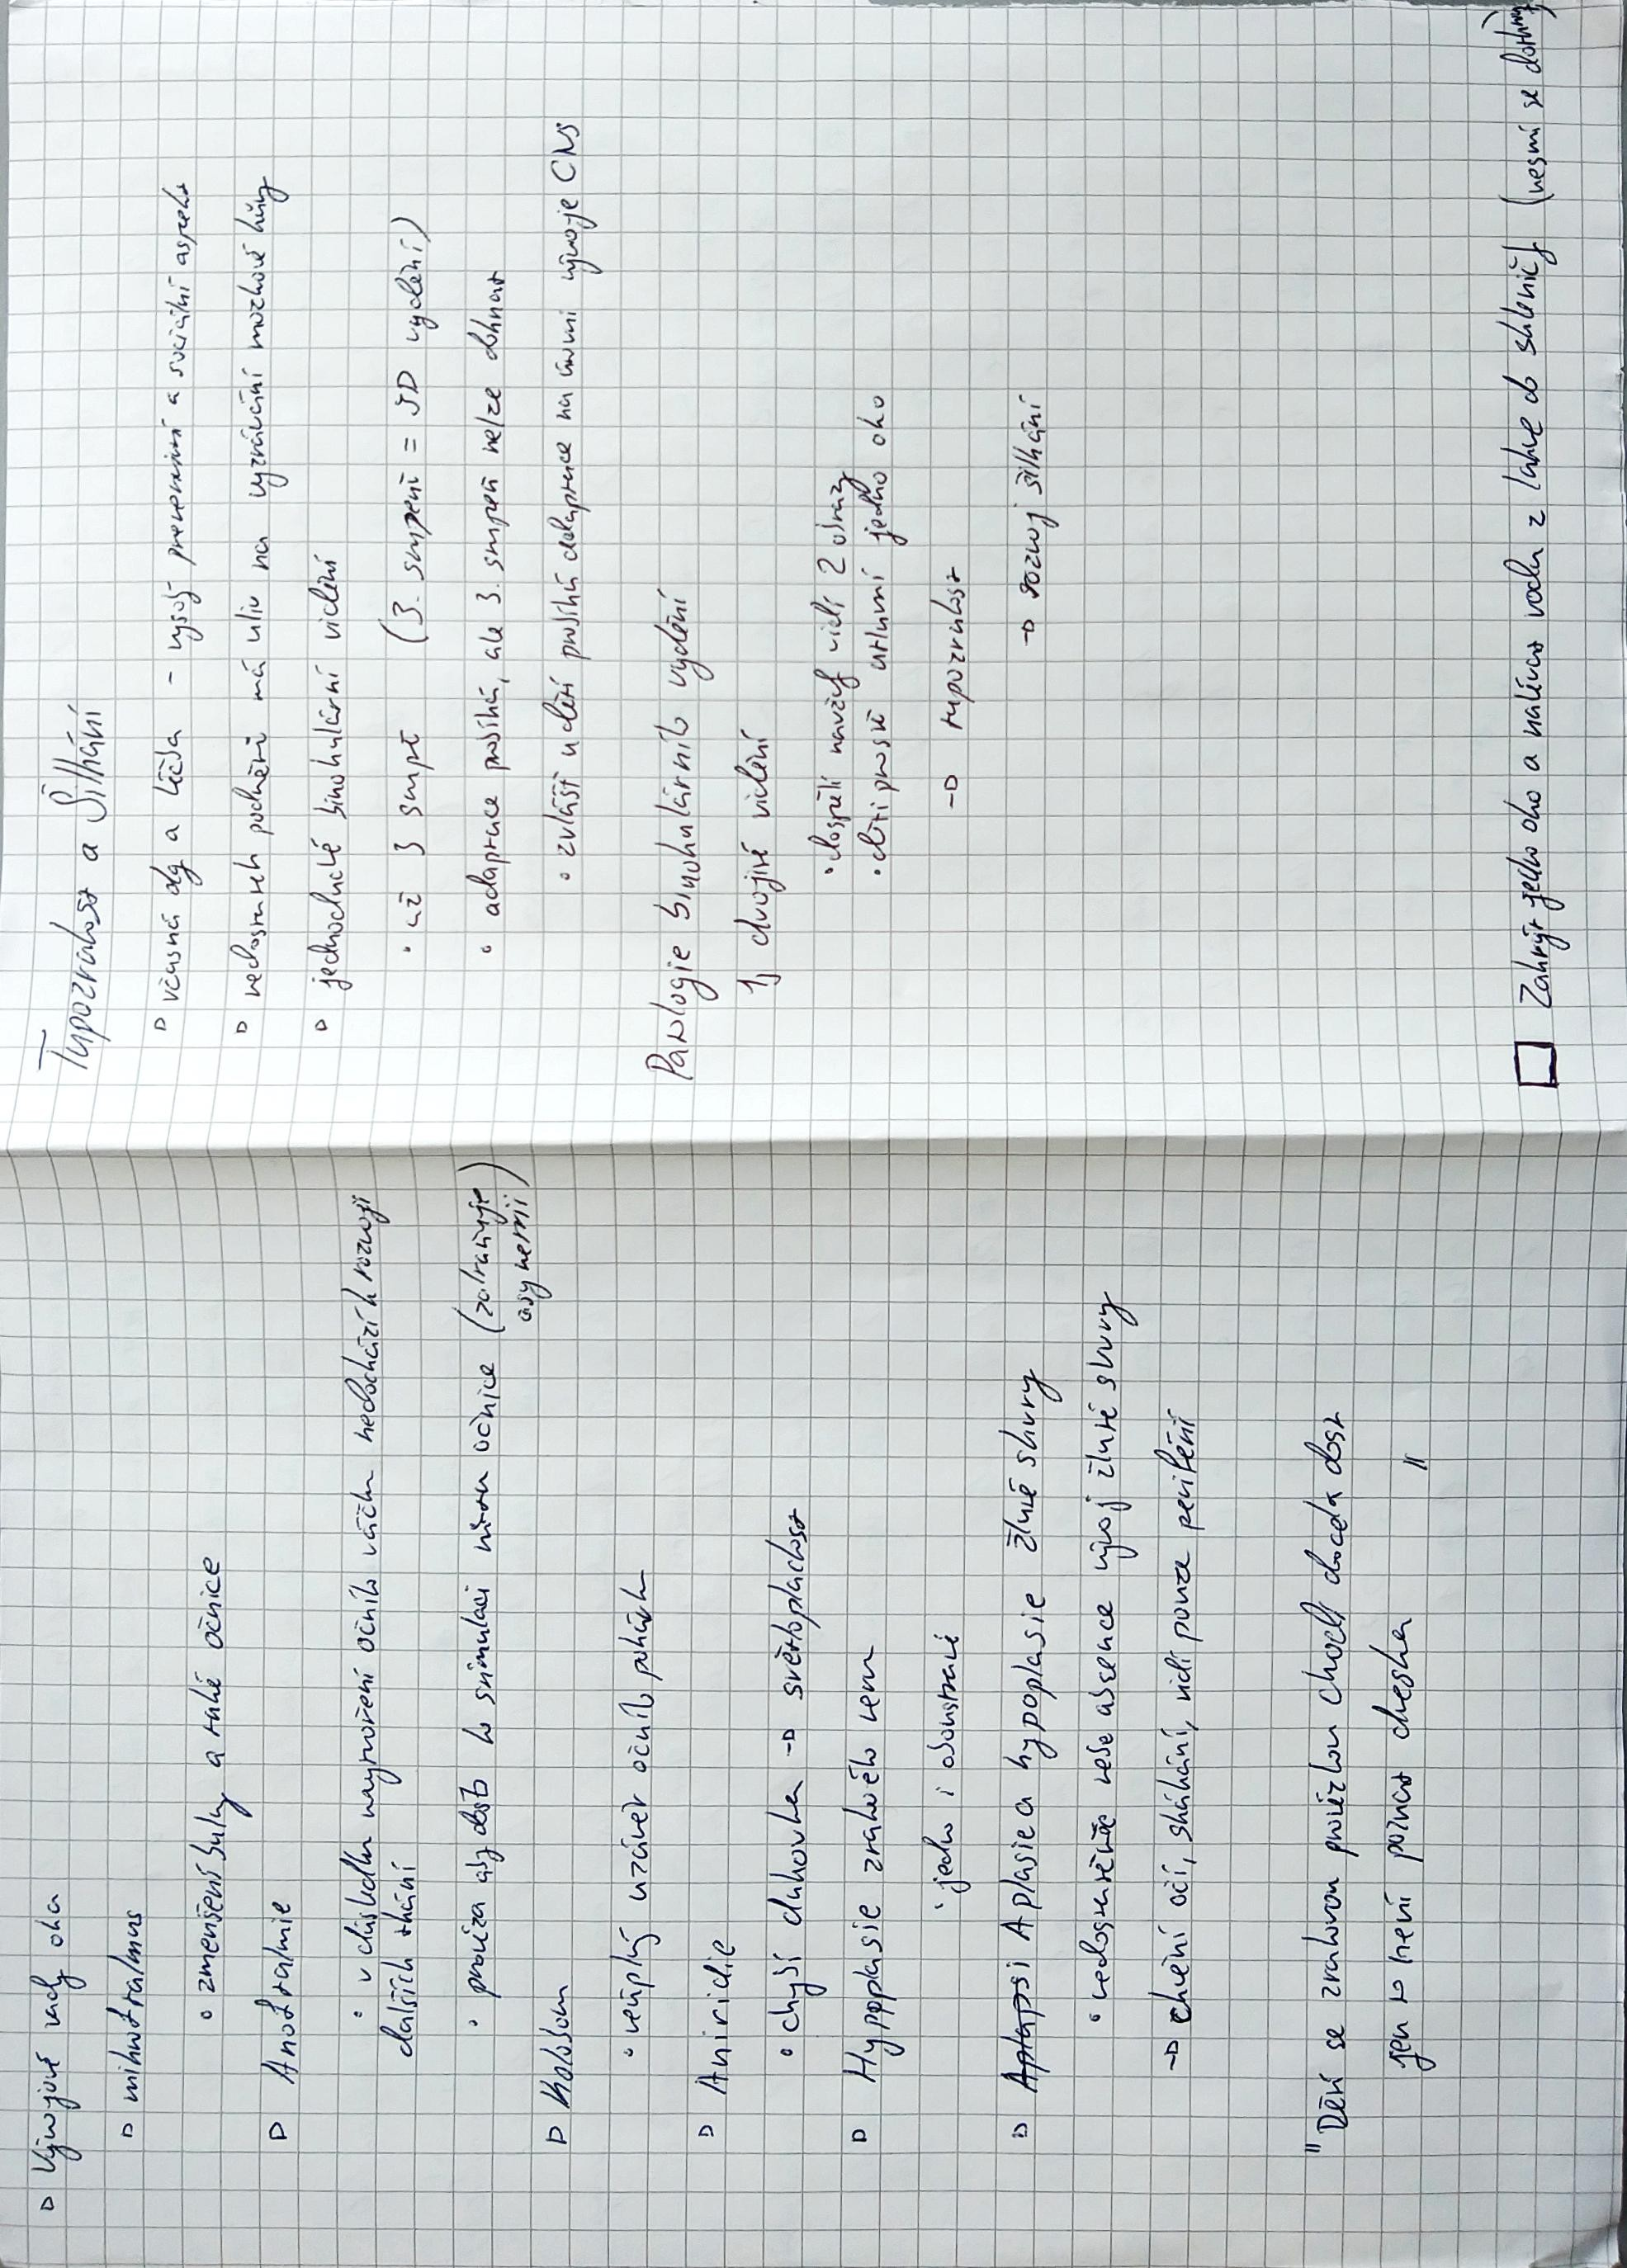 Vývojové vady oka
mikroftalmus
• zmenšení bulvy a také očnice
Anoftalmie
• v důsledku nevytvoření očního váčku nedochází k rozvoji
dalších tkání
• protéza aby došlo ke stimulaci růstu očnice (zabraňuje
asymetrii)
Kolobom
• neúplný uzávěr očního pohárku
Aniridie
• chybí duhovka → světloplachost
Hypoplasie zrakového nervu
• jedno i oboustranné
Aplapsi Aplasie a hypoplasie žluté skvrny
• nedostatečné nebo absence vývoj žluté skvrny
→ chvění očí, šilhání, vidí pouze periferií
"Děti se zrakovou chodí docela dost
jen to není poznat dneska "
Tupozrakost a Šilhání
včasná dg a léčba - vysoký preventivní a sociální aspekt
nedostatek podnětů má vliv na vyzrávání mozkové kůry
jednoduché binokulární vidění
• až 3 stupně (3. stupeň = 3D vydění)
• adaptace probíhá, ale 3. stupeň nelze dohnat
• zvlášť u dětí probíhá adaptace na úrovni vývoje CNS
Patologie binokulárního vydění
1, dvojité vidění
• dospělí navždy vidí 2 obrazy
• děti prostě utlumí jedno oko
→ tupozrakost
→ rozvoj šilhání
Zakrýt jedno oko a nalívat vodu z lahve do skleničky (nesmí se dotknout